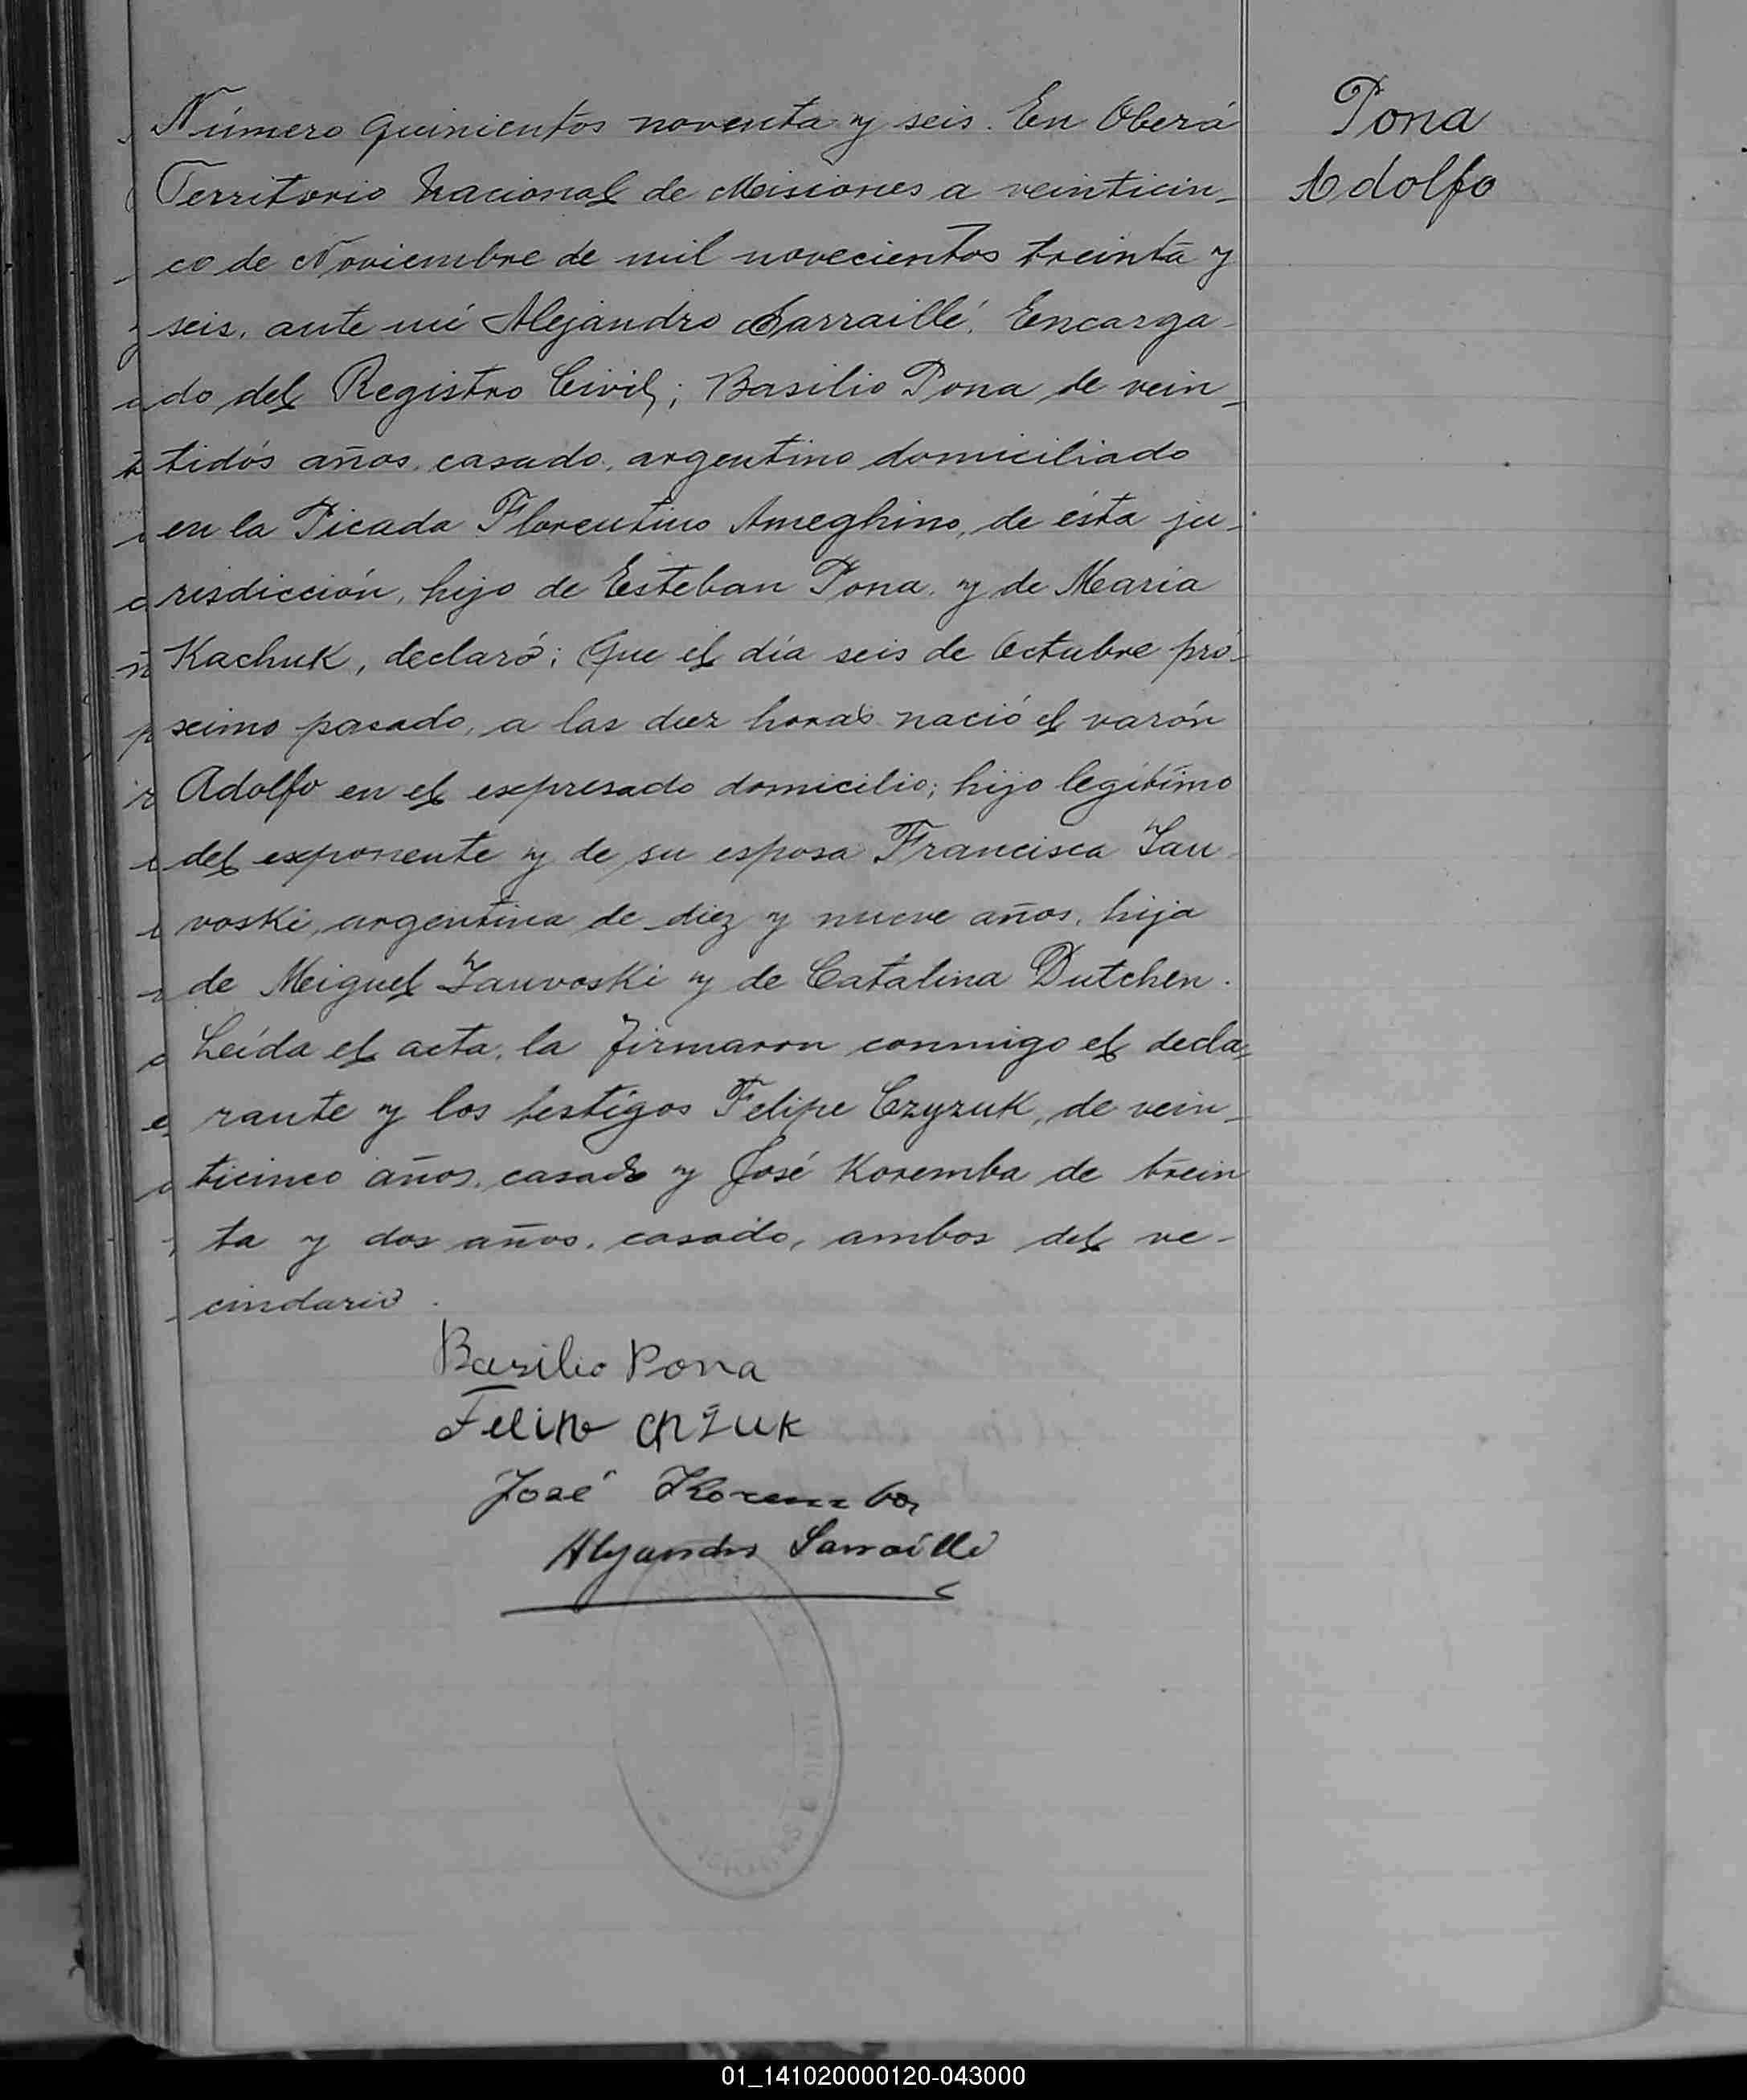 Número quinientos noventa y seis. En Oberá
Territorio Nacional de Misiones a veinticin-
co de Noviembre de mil novecientos treinta y
seis, ante mí Alejandro Sarraillé, Encarga-
do del Registro Civil; Basilio Pona de vein-
tidós años, casado, argentino domiciliado
en la Picada Florentino Ameghino, de ésta ju-
risdicción, hijo de Esteban Pona, y de María
Kachuk, declaró; Que el día seis de Octubre pró-
ximo pasado, a las diez horas nació el varón
Adolfo en el expresado domicilio; hijo legítimo
del exponente y de su esposa Francisca Yau-
voski, argentina de diez y nueve años, hija
de Miguel Yauvoski y de Catalina Dutchen.
Leída el acta, la firmaron conmigo el decla-
rante y los testigos Felipe Czyzuk, de vein-
ticinco años, casado y José Koremba de trein
ta y dos años, casado, ambos del ve-
cindario.
Pona
Adolfo
Basilio Pona
Felipe
José Koremba
Alejandro Sarraillé
01_141020000120-043000